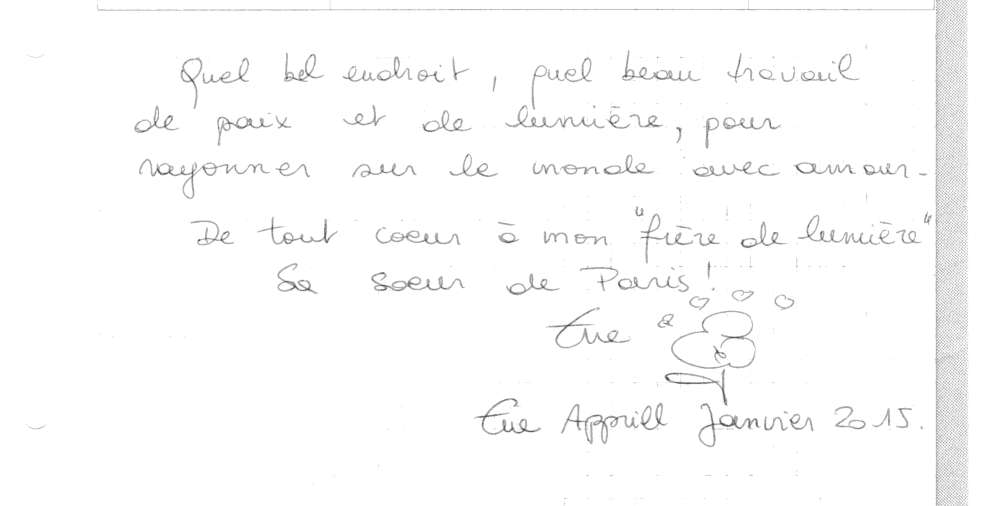 Quel bel endroit, quel beau travail
de paix et de lumière, pour
rayonner sur le monde avec amour.
De tout coeur à mon "frère de lumière"
Sa soeur de Paris!
Eve
Eve Apprill Janvier 2015.